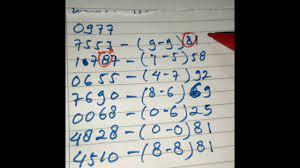 0977
7557 – (9-9) 81
10787 – (7-5) 58
0655 – (4-7) 92
7690 – (8-6) 69
0068 – (0-6) 25
4828 – (0-0) 81
4510 – (8-8) 81